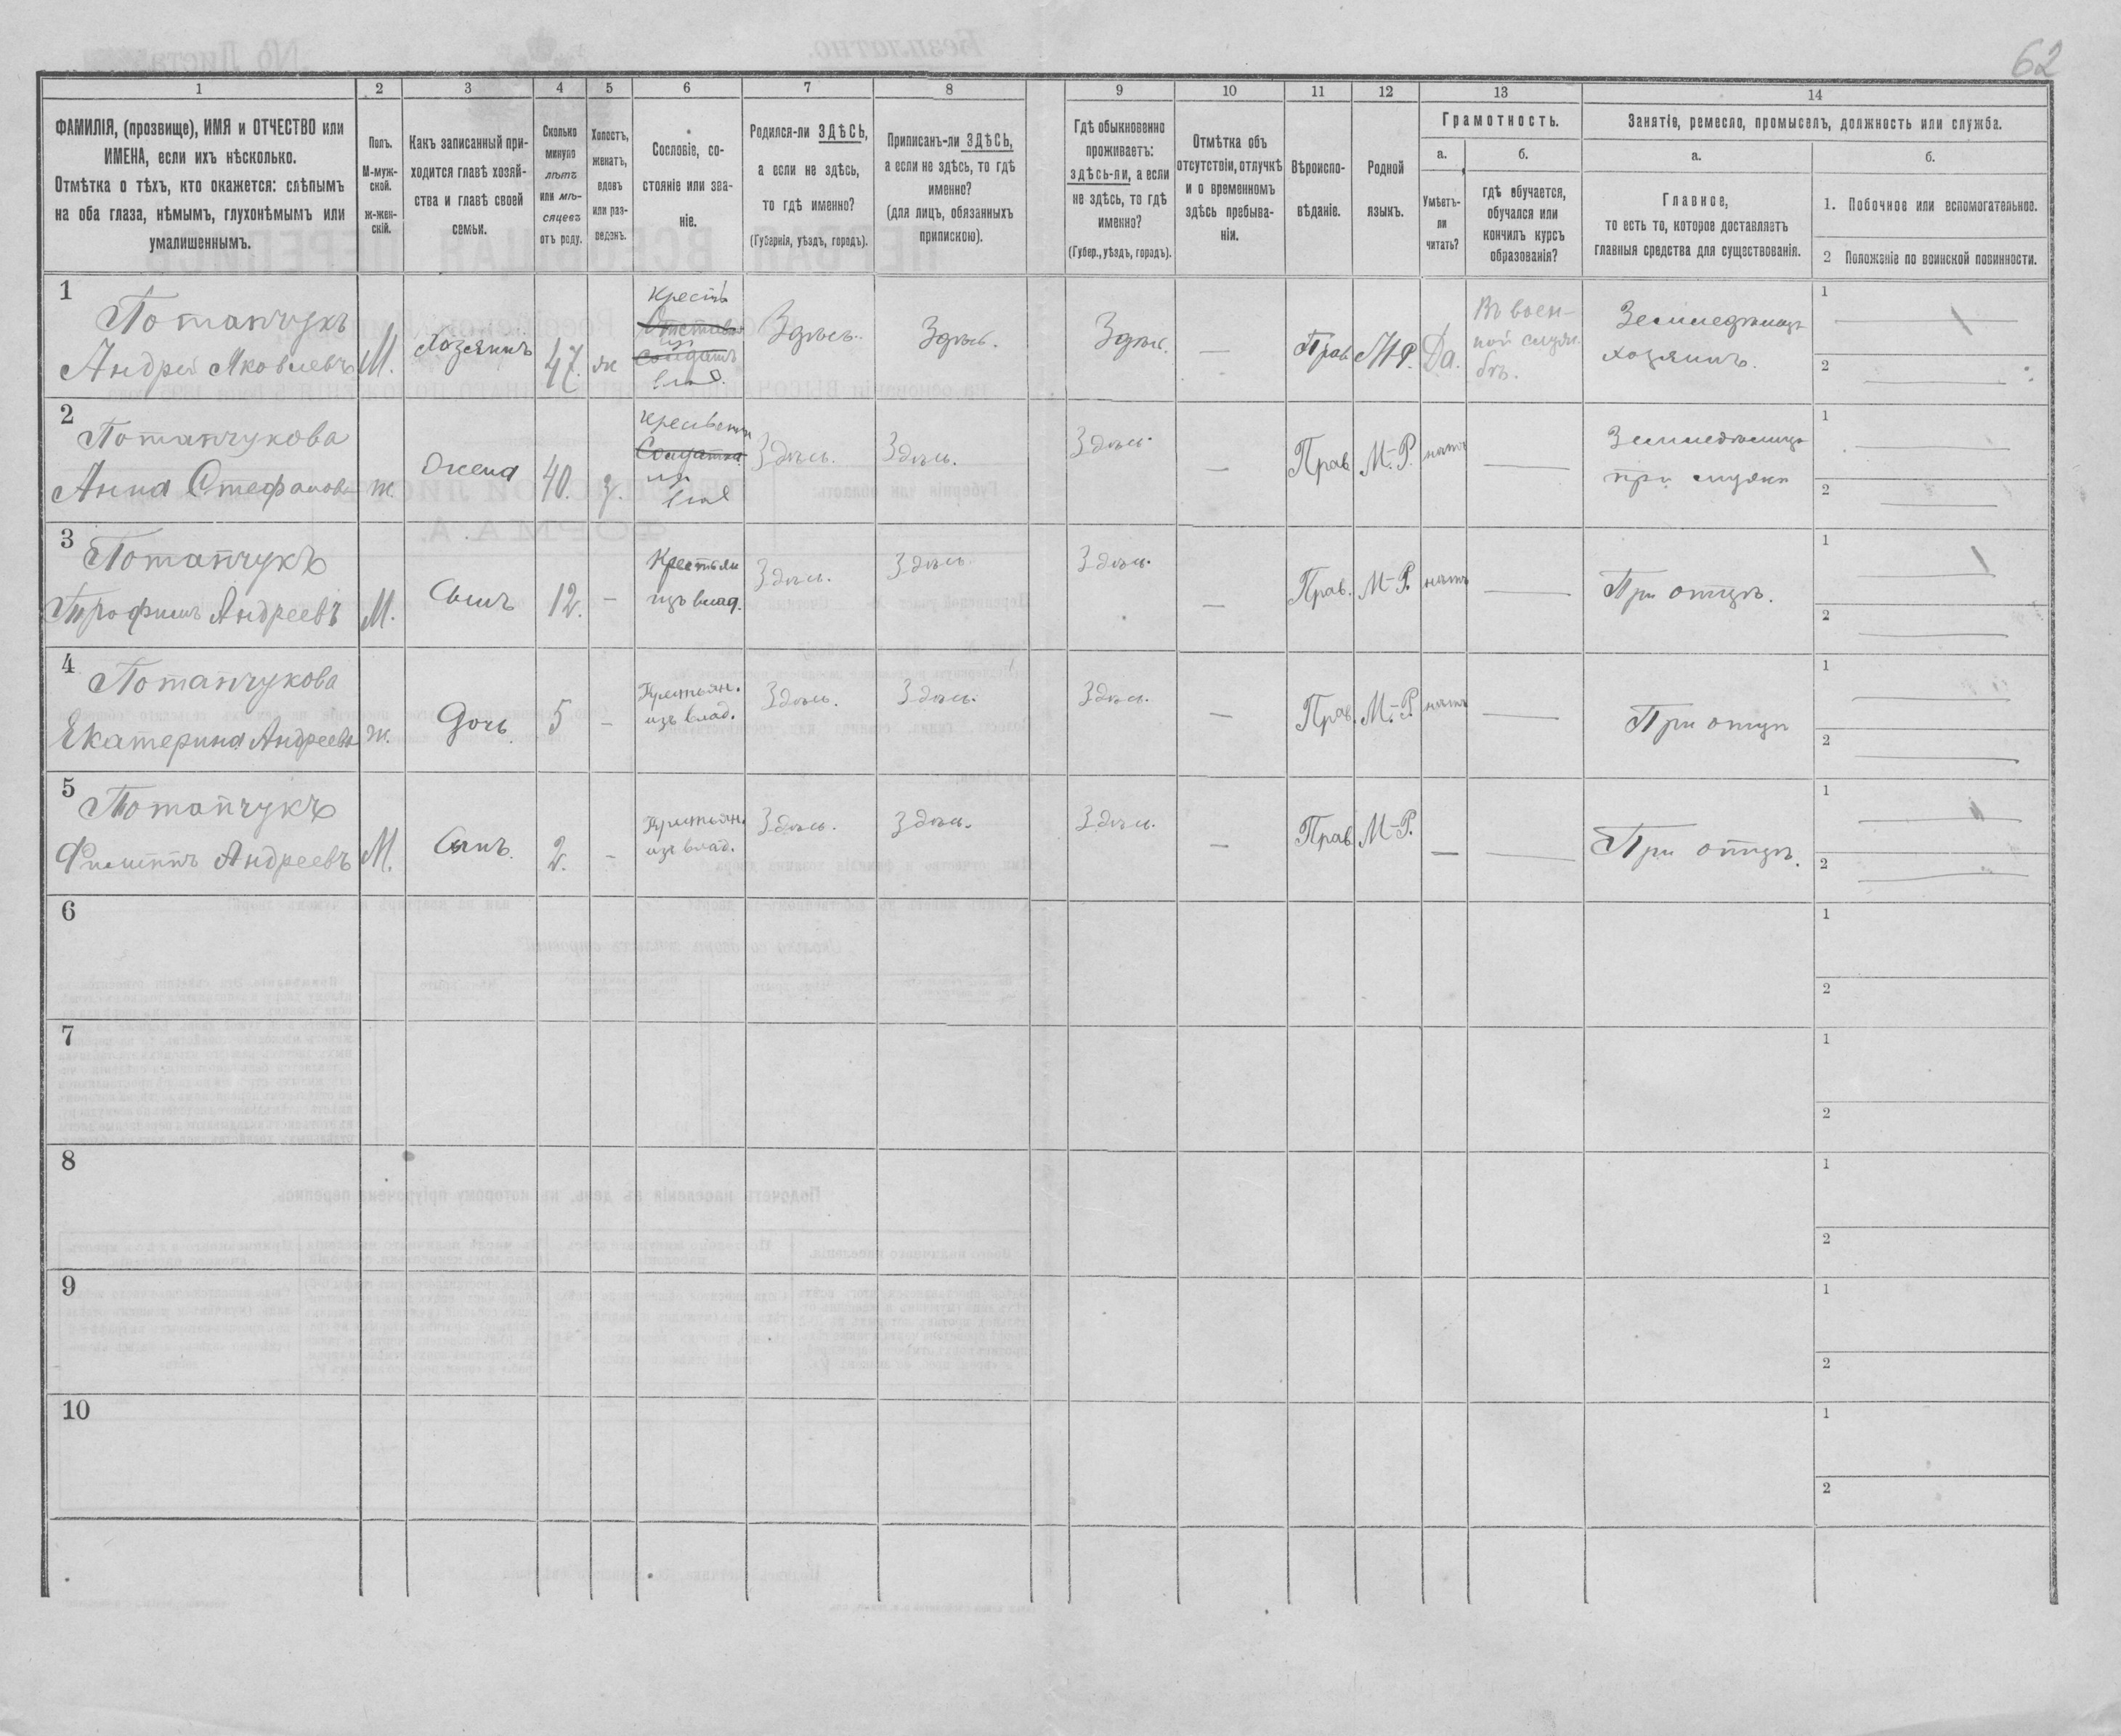 62
1 2 3 4 5 6 7 8 9 10 11 12 13 14
ФАМИЛІЯ, (прозвище), ИМЯ и ОТЧЕСТВО или
ИМЕНА, если ихъ нѣсколько.
Отмѣтка о тѣхъ, кто окажется: слѣпымъ
на оба глаза, нѣмымъ, глухонѣмымъ или
умалишеннымъ.
Полъ.
М-муж-
ской.
ж-жен-
скій.
Какъ записанный при-
ходится главѣ хозяй-
ства и главѣ своей
семьи.
Сколько
минуло
лѣтъ
или мѣ-
сяцевъ
отъ роду.
Холостъ,
женатъ,
вдовъ
или раз-
веденъ.
Сословіе, со-
стояніе или зва-
ніе.
Родился-ли ЗДѢСЬ,
а если не здѣсь,
то гдѣ именно?
(Губернія, уѣздъ, городъ).
Приписанъ-ли ЗДѢСЬ,
а если не здѣсь, то гдѣ
именно?
(для лицъ, обязанныхъ
припискою).
Гдѣ обыкновенно
проживаетъ:
здѣсь-ли, а если
не здѣсь, то гдѣ
именно?
(Губер., уѣздъ, городъ).
Отмѣтка объ
отсутствіи, отлучкѣ
и о временномъ
здѣсь пребыва-
ніи.
Вѣроиспо-
вѣданіе.
Родной
языкъ.
Грамотность.
а.
Умѣетъ-
ли
читать?
б.
гдѣ обучается,
обучался или
кончилъ курсъ
образованія?
Занятіе, ремесло, промыселъ, должность или служба.
а.
Главное,
то есть то, которое доставляетъ
главныя средства для существованія.
б.
1. Побочное или вспомогательное.
2 Положеніе по воинской повинности.
1
Потапчукъ
Андрей Яковлевъ
М.
Хозяинъ
47.
ж
Крестъ
из
влад.
Здѣсь.
Здѣсь.
Здѣсь.
—
Прав.
М-Р.
Да.
Въ воен-
ной служ-
бѣ.
Земледѣлецъ
хозяинъ.
1
2
2
Потапчукова
Анна Стефанова
ж.
Жена
40.
з.
Крестьян
Солдатка
из
влад
Здѣсь.
Здѣсь.
Здѣсь.
—
Прав.
М-Р.
нѣтъ
—
Земледѣлица
при мужѣ
1
2
3
Потапчукъ
Трофимъ Андреевъ
М.
Сынъ
12.
-
Крестьян
изъ влад.
Здѣсь.
Здѣсь.
Здѣсь.
—
Прав.
М-Р.
нѣтъ
—
При отцѣ.
1
2
4
Потапчукова
Екатерина Андреева
ж.
Дочь.
5
-
Крестьян.
изъ влад.
Здѣсь.
Здѣсь.
Здѣсь.
—
Прав.
М-Р.
нѣтъ
—
При отцѣ
1
2
5
Потапчукъ
Филиппъ Андреевъ
М.
Сынъ.
2.
-
Крестьян.
изъ влад.
Здѣсь.
Здѣсь.
Здѣсь.
—
Прав.
М-Р.
—
—
При отцѣ.
1
2
6
1
2
7
1
2
8
1
2
9
1
2
10
1
2